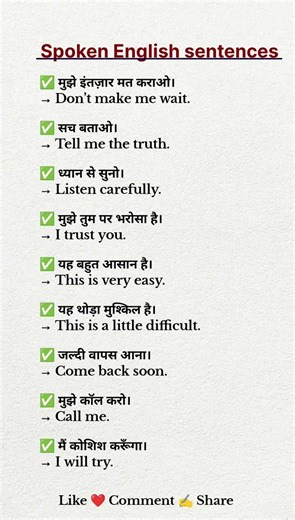 Spoken English sentences
✅ मुझे इंतज़ार मत कराओ।
→ Don't make me wait.
✅ सच बताओ।
→ Tell me the truth.
✅ ध्यान से सुनो।
→ Listen carefully.
✅ मुझे तुम पर भरोसा है।
→ I trust you.
✅ यह बहुत आसान है।
→ This is very easy.
✅ यह थोड़ा मुश्किल है।
→ This is a little difficult.
✅ जल्दी वापस आना।
→ Come back soon.
✅ मुझे कॉल करो।
→ Call me.
✅ मैं कोशिश करूँगा।
→ I will try.
Like ❤️ Comment ✍️ Share